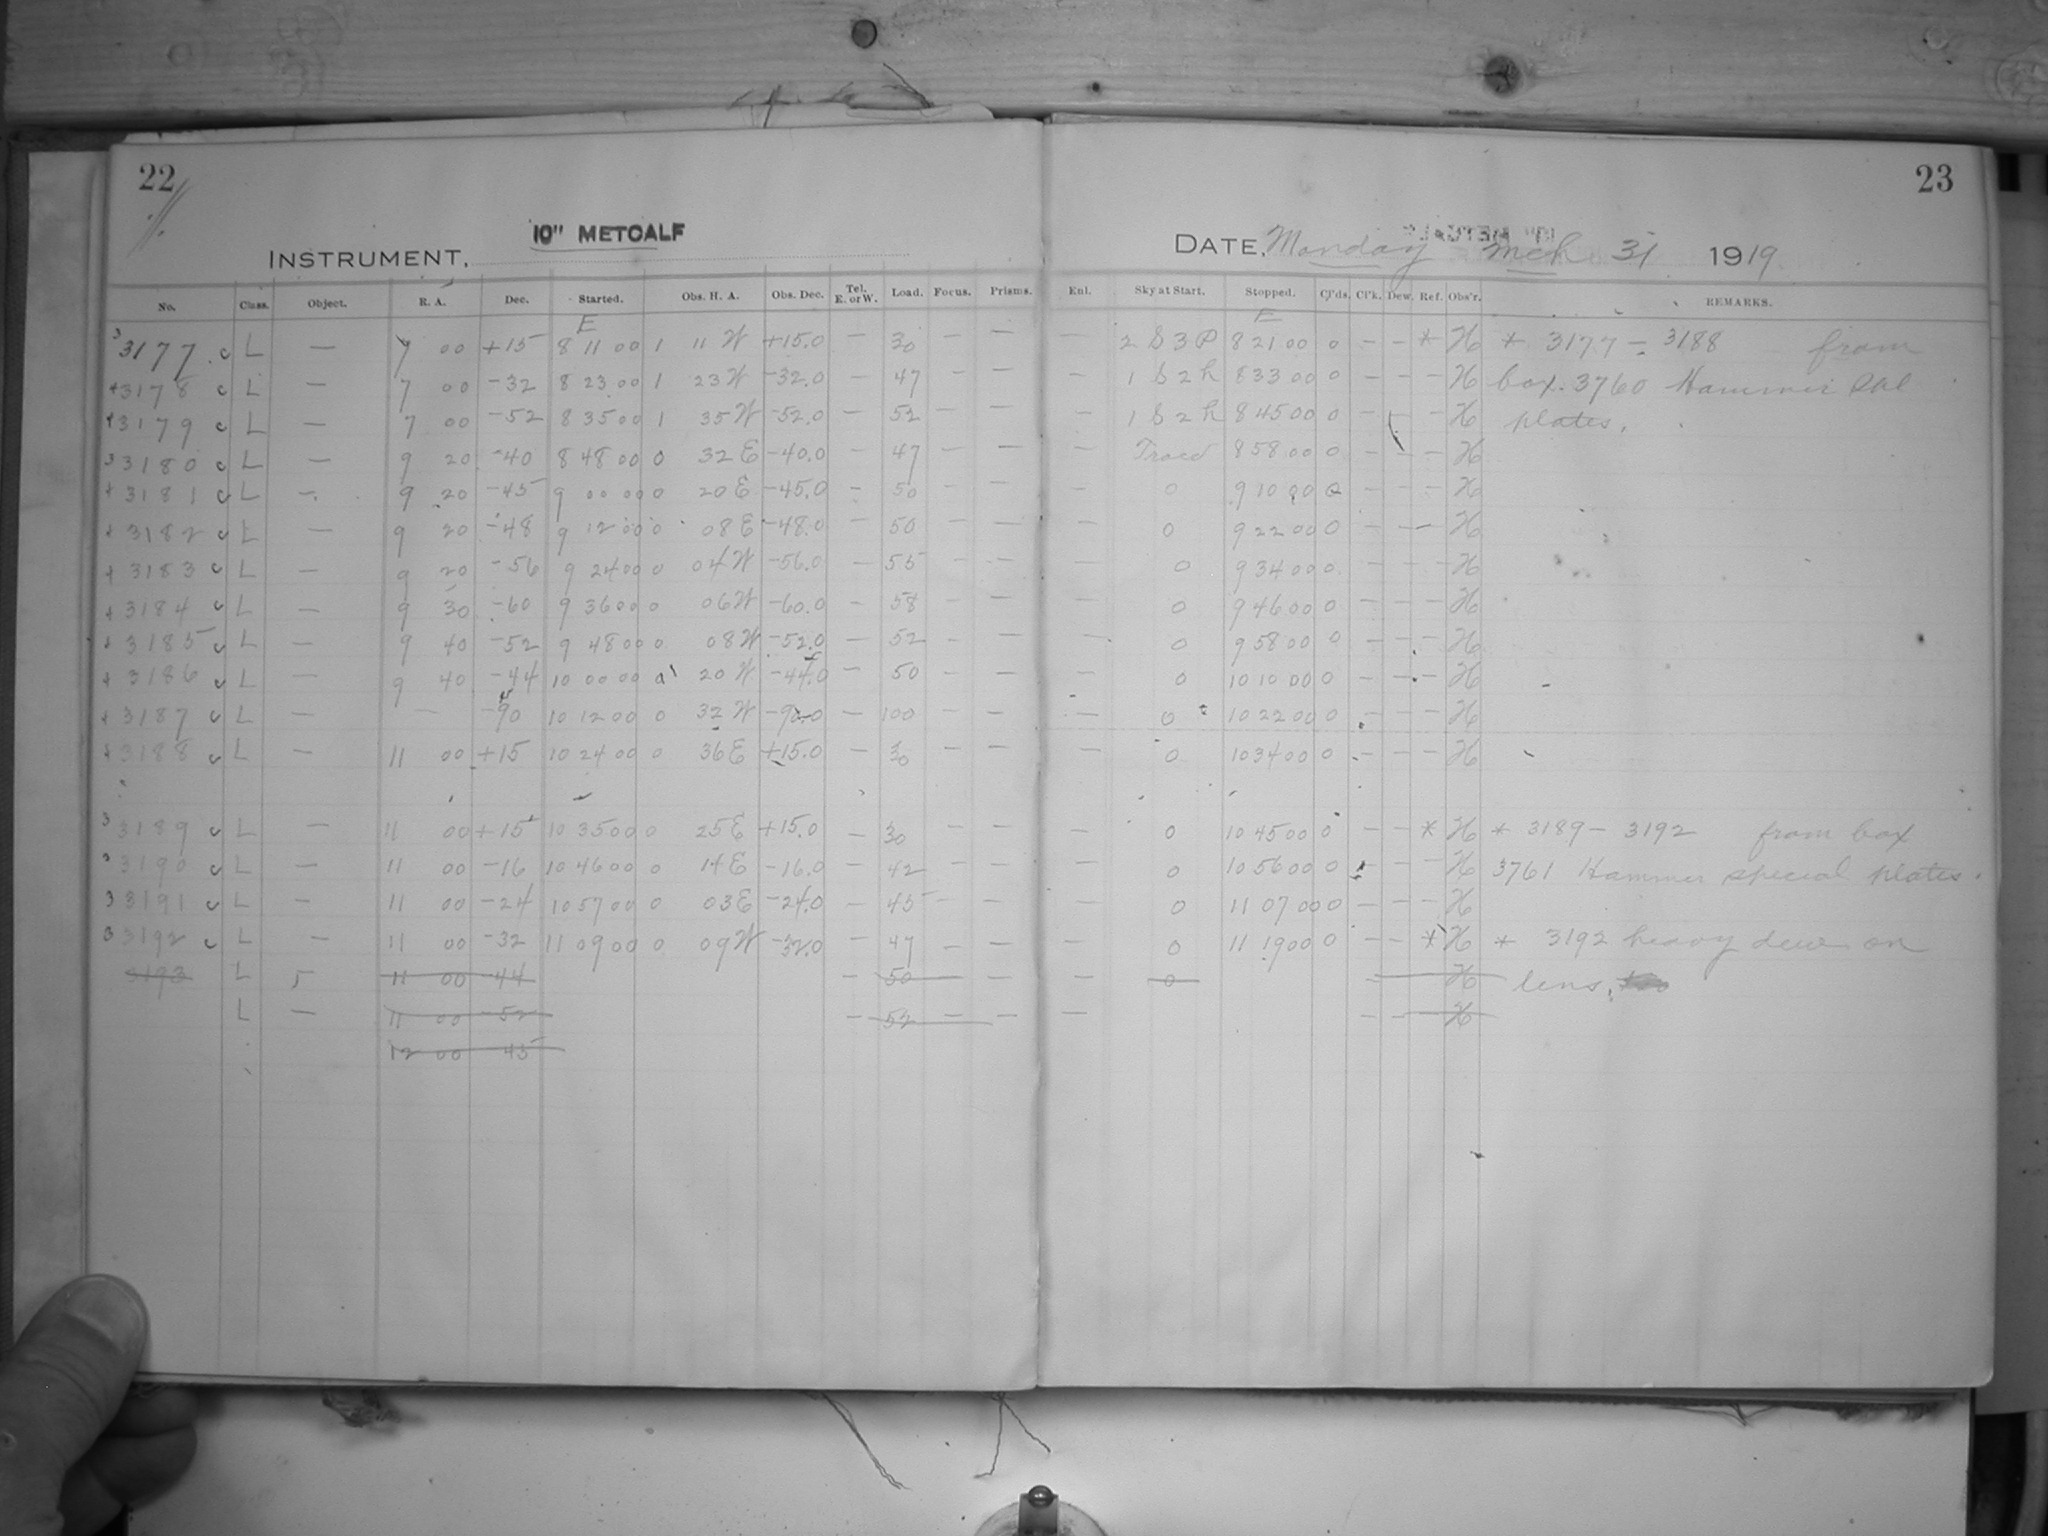 22
23
INSTRUMENT, 10" METCALF
DATE, Monday Mch 31 1919
No. Class. Object. R. A. Dec. Started. Obs. H. A. Obs. Dec. Tel. E. or W. Load. Focus. Prisms. Enl. Sky at Start. Stopped. Cl'ds. Cl'k. Dew. Ref. Obs'r. REMARKS.
E E
3177 c L — 7 00 +15 8 11 00 1 11 W +15.0 — 30 — — — 2 S 3 P 8 21 00 0 — — * H * 3177 – 3188 from
3178 c L — 7 00 -32 8 23 00 1 23 W -32.0 — 47 — — — 1 S 2 h 8 33 00 0 — — — H box 3760 Hammer
3179 c L — 7 00 -52 8 35 00 1 35 W -52.0 — 52 — — — 1 S 2 h 8 45 00 0 — — — H plates.
3180 c L — 9 20 -40 8 48 00 0 32 E -40.0 — 47 — — — 8 58 00 0 — — — H
3181 c L — 9 20 -45 9 00 00 0 20 E -45.0 — 50 — — — 0 9 10 00 0 — — — H
3182 c L — 9 20 -48 9 12 00 0 08 E -48.0 — 50 — — — 0 9 22 00 0 — — — H
3183 c L — 9 20 -56 9 24 00 0 04 W -56.0 — 55 — — — 0 9 34 00 0 — — — H
3184 c L — 9 30 -60 9 36 00 0 06 W -60.0 — 58 — — — 0 9 46 00 0 — — — H
3185 c L — 9 40 -52 9 48 00 0 08 W -52.0 — 52 — — — 0 9 58 00 0 — — — H
3186 c L — 9 40 -44 10 00 00 0 20 W -44.0 — 50 — — — 0 10 10 00 0 — — — H
3187 c L — — -90 10 12 00 0 32 W -90.0 — 100 — — — 0 10 22 00 0 — — — H
3188 c L — 11 00 +15 10 24 00 0 36 E +15.0 — 30 — — — 0 10 34 00 0 — — — H
3189 c L — 11 00 +15 10 35 00 0 25 E +15.0 — 30 — — — 0 10 45 00 0 — — * H * 3189 – 3192 from box
3190 c L — 11 00 -16 10 46 00 0 14 E -16.0 — 42 — — — 0 10 56 00 0 — — — H 3761 Hammer special plates.
3191 c L — 11 00 -24 10 57 00 0 03 E -24.0 — 45 — — — 0 11 07 00 0 — — — H
3192 c L — 11 00 -32 11 09 00 0 09 W -32.0 — 47 — — — 0 11 19 00 0 — — * H * 3192 heavy dew on
3193 L 11 00 -44 — 50 — — — 0 — — H lens.
L — 11 00 -52 — 52 — — — — — H
12 00 45